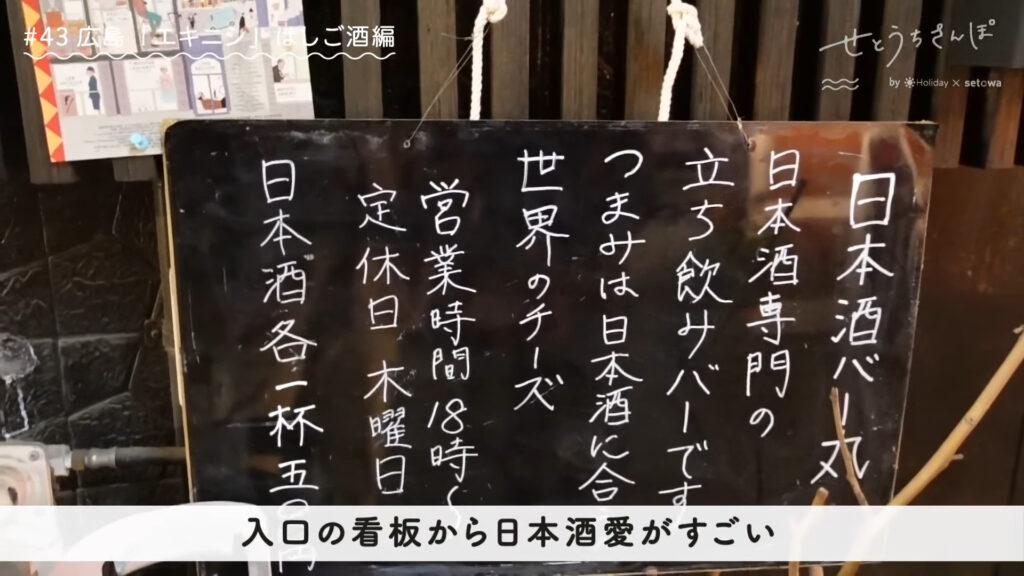 #43 広島「エキニシ」はしご酒編
せとうちさんぽ
by Holiday × setowa
日本酒バー丸
日本酒専門の
立ち飲みバーです
つまみは日本酒に合
世界のチーズ
営業時間 18時〜
定休日 木曜日
日本酒各一杯五〇円
入口の看板から日本酒愛がすごい